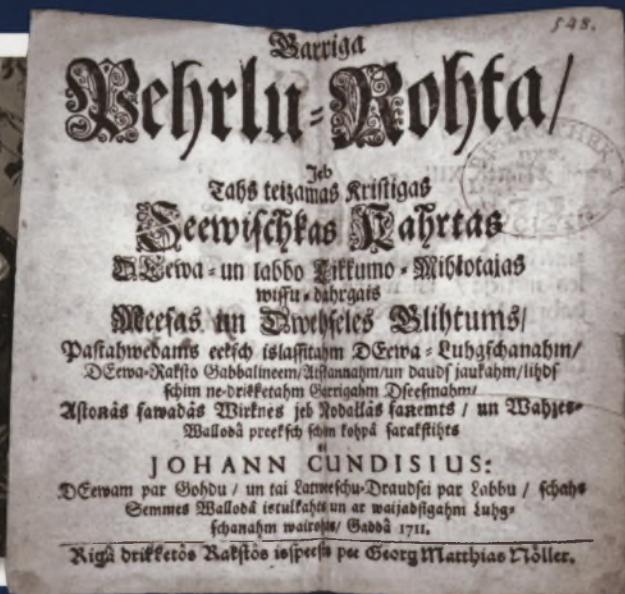 548.
Garriga
Pehrlu-Rohta/
Jeb
Tahs teizamas Kristigas
Seewischkas Kahrtas
DEewa-un labbo Tikkumo-Mihlotajas
wissu-dahrgais
Meesas un Dwehseles Glihtums/
Pastahwedams eeksch islassitahm DEewa-Luhgschanahm/
DEewa-Raksto Gabbalineem/Atsannahm/un daudf jaukahm/lihdf
schim ne-drikketahm Garrigahm Dseesmahm/
Astonâs sawadâs Wirknes jeb Nodallâs saņemts/ un Wahzes-
Wallodâ preeksch schim kohpâ sarakstihts
JOHANN CUNDISIUS:
DEewam par Gohdu/ un tai Latweeschu-Draudsei par Labbu/ schahs
Semmes Wallodâ istulkahts un ar waijadsigahm Luhg-
schanahm wairohts/ Gaddâ 1711.
Rigâ drikketôs Rakstôs isspeests pee Georg Matthias Nöller.